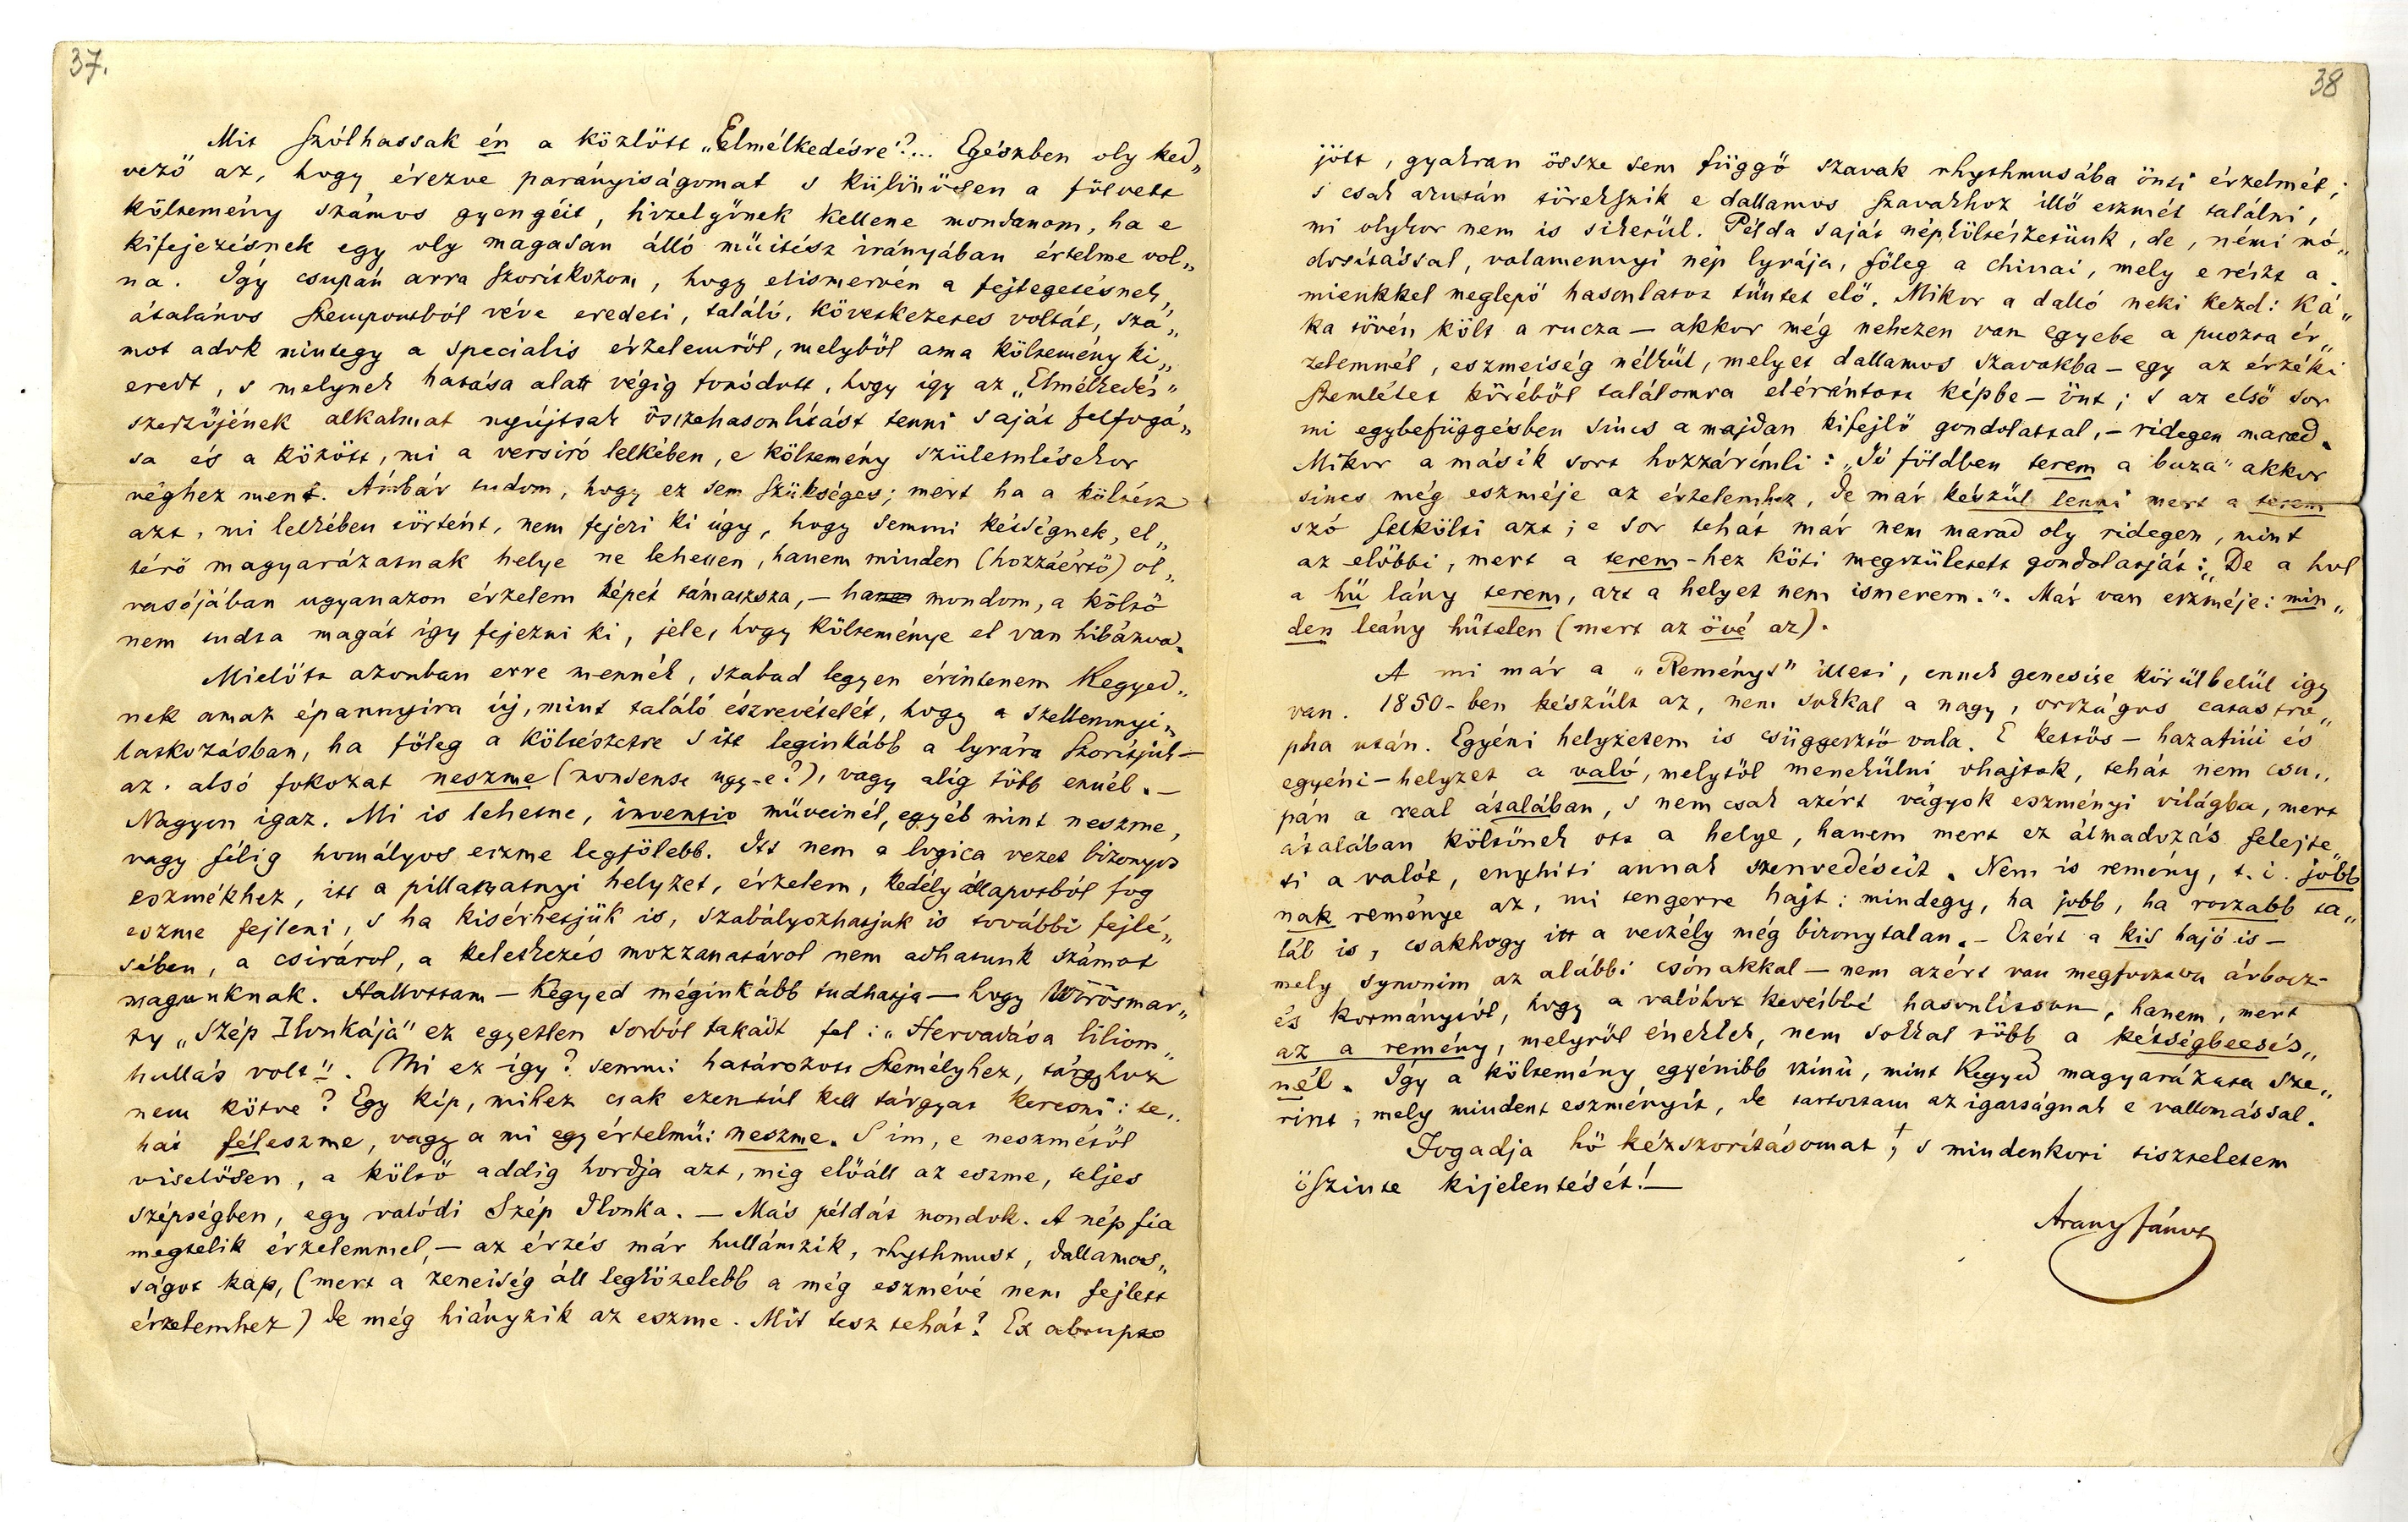 37.
Mit szólhassak én a közlött „Elmélkedésre"?... Egészben oly ked„
vező az, hogy érezve parányiságomat s különösen a fölvett
költemény számos gyengéit, hizelgőnek kellene mondanom, ha e
kifejezésnek egy oly magasan álló műitész irányában értelme vol„
na. Így csupán arra szorítkozom, hogy elismervén a fejtegetésnek,
átalános szempontból véve eredeti, találó, következetes voltát, szá„
mot adok mintegy a speciális érzelemről, melyből ama költemény ki„
eredt, s melynek hatása alatt végig fonódott, hogy így az „Elmélkedés"
szerzőjének alkalmat nyújtsak összehasonlítást tenni saját felfogá„
sa és a között, mi a versiró lelkében, e költemény születmlésekor
véghez ment. Ámbár tudom, hogy ez sem szükséges; mert ha a költész
azt, mi lelkében történt, nem fejezi ki úgy, hogy semmi kétségnek, el„
térő magyarázatnak helye ne lehessen, hanem minden (hozzáértő) ol„
vasójában ugyanazon érzelem képét támassza, – ha mondom, a költő
nem tudta magát így fejezni ki, jele, hogy költeménye el van hibázva.
Mielőtt azonban erre mennék, szabad legyen érintenem Kegyed„
nek amaz épannyira új, mint találó észrevételét, hogy a szellemnyi„
latkozásban, ha főleg a költészetre s itt leginkább a lyrára szorítjuk –
az alsó fokozat neszme (nonsense ugy-e?), vagy alig több ennél. –
Nagyon igaz. Mi is lehetne, inventio műveinél, egyéb mint neszme,
vagy félig homályos eszme legfölebb. Itt nem a logica vezet bizonyos
eszmékhez, itt a pillanatnyi helyzet, érzelem, kedély állapotból fog
eszme fejleni, s ha kisérhetjük is, szabályozhatjuk is további fejlé„
sében, a csiráról, a keletkezés mozzanatáról nem adhatunk számot
magunknak. Hallottam – Kegyed méginkább tudhatja – hogy Vörösmar„
ty „Szép Ilonkája" ez egyetlen sorból fakadt fel: „Hervadása liliom„
hullás volt". Mi ez így? semmi határozott személyhez, tárgyhoz
nem kötve? Egy kép, mihez csak ezentúl kell tárgyat keresni: te„
hát féleszme, vagy a mi egy értelmű: neszme. S ím, e neszmétől
viselősen, a költő addig hordja azt, míg előáll az eszme, teljes
szépségben, egy valódi Szép Ilonka. – Más példát mondok. A nép fia
megtelik érzelemmel, – az érzés már hullámzik, rhythmust, dallamos„
ságot kap, (mert a zeneiség áll legközelebb a még eszmévé nem fejlett
érzelemhez) de még hiányzik az eszme. Mit tesz tehát? Ex abrupto
38
jött, gyakran össze sem függő szavak rhythmusába önti érzelmét;
s csak azután törekszik e dallamos szavakhoz illő eszmét találni,
mi olykor nem is sikerül. Példa saját népköltészetünk, de, némi mó„
dosítással, valamennyi nép lyrája, főleg a chinai, mely e részt a
mienkkel meglepő hasonlatot tüntet elő. Mikor a dalló neki kezd: Ká„
ka tövén költ a rucza – akkor még nehezen van egyebe a puszta ér„
zelemnél, eszmeiség nélkül, melyet dallamos szavakba – egy az érzéki
szemlélet köréből találomra elérántott képbe – önt; s az első sor
mi egybefüggésben sincs a majdan kifejlő gondolattal, – ridegen marad.
Mikor a másik sort hozzárímli: „Jó földben terem a buza" akkor
sincs még eszméje az érzelemhez, de már készül lenni mert a terem
szó felkölti azt; e sor tehát már nem marad oly ridegen, mint
az előbbi, mert a terem-hez köti megszületett gondolatját: „De a hol
a hű lány terem, azt a helyet nem ismerem.". Már van eszméje: min„
den leány hűtelen (mert az övé az).
A mi már a „Reményt" illeti, ennek genesise körülbelül így
van. 1850-ben készült az, nem sokkal a nagy, országos catastro„
pha után. Egyéni helyzetem is csüggesztő vala. E kettős – hazafiúi és
egyéni – helyzet a való, melytől menekülni ohajtok, tehát nem csu„
pán a real átalában, s nem csak azért vágyok eszményi világba, mert
átalában költőnek ott a helye, hanem mert ez álmadozás felejte„
ti a valót, enyhíti annak szenvedéseit. Nem is remény, t. i. jobb
nak reménye az, mi tengerre hajt: mindegy, ha jobb, ha roszabb ta„
lál is, csakhogy itt a veszély még bizonytalan. – Ezért a kis hajó is –
mely synonim az alábbi csónakkal – nem azért van megfosztva árbocz-
és kormánytól, hogy a valóhoz kevésbbé hasonlítson, hanem, mert
az a remény, melyről éneklek, nem sokkal több a kétségbeesés„
nél. Így a költemény egyénibb színű, mint Kegyed magyarázata sze„
rint, mely mindent eszményít, de tartoztam az igazságnak e vallomással.
Fogadja hő kézszorításomat, s mindenkori tiszteletem
őszinte kijelentését! –
Arany János